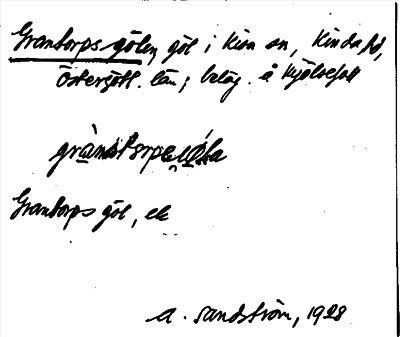 Grantorps gölen, göl i Kisa sn, Kinda hd,
Östergötl. län; beläg. å Kjölsefall
Grantorps göl, ek
A. Sandström, 1928